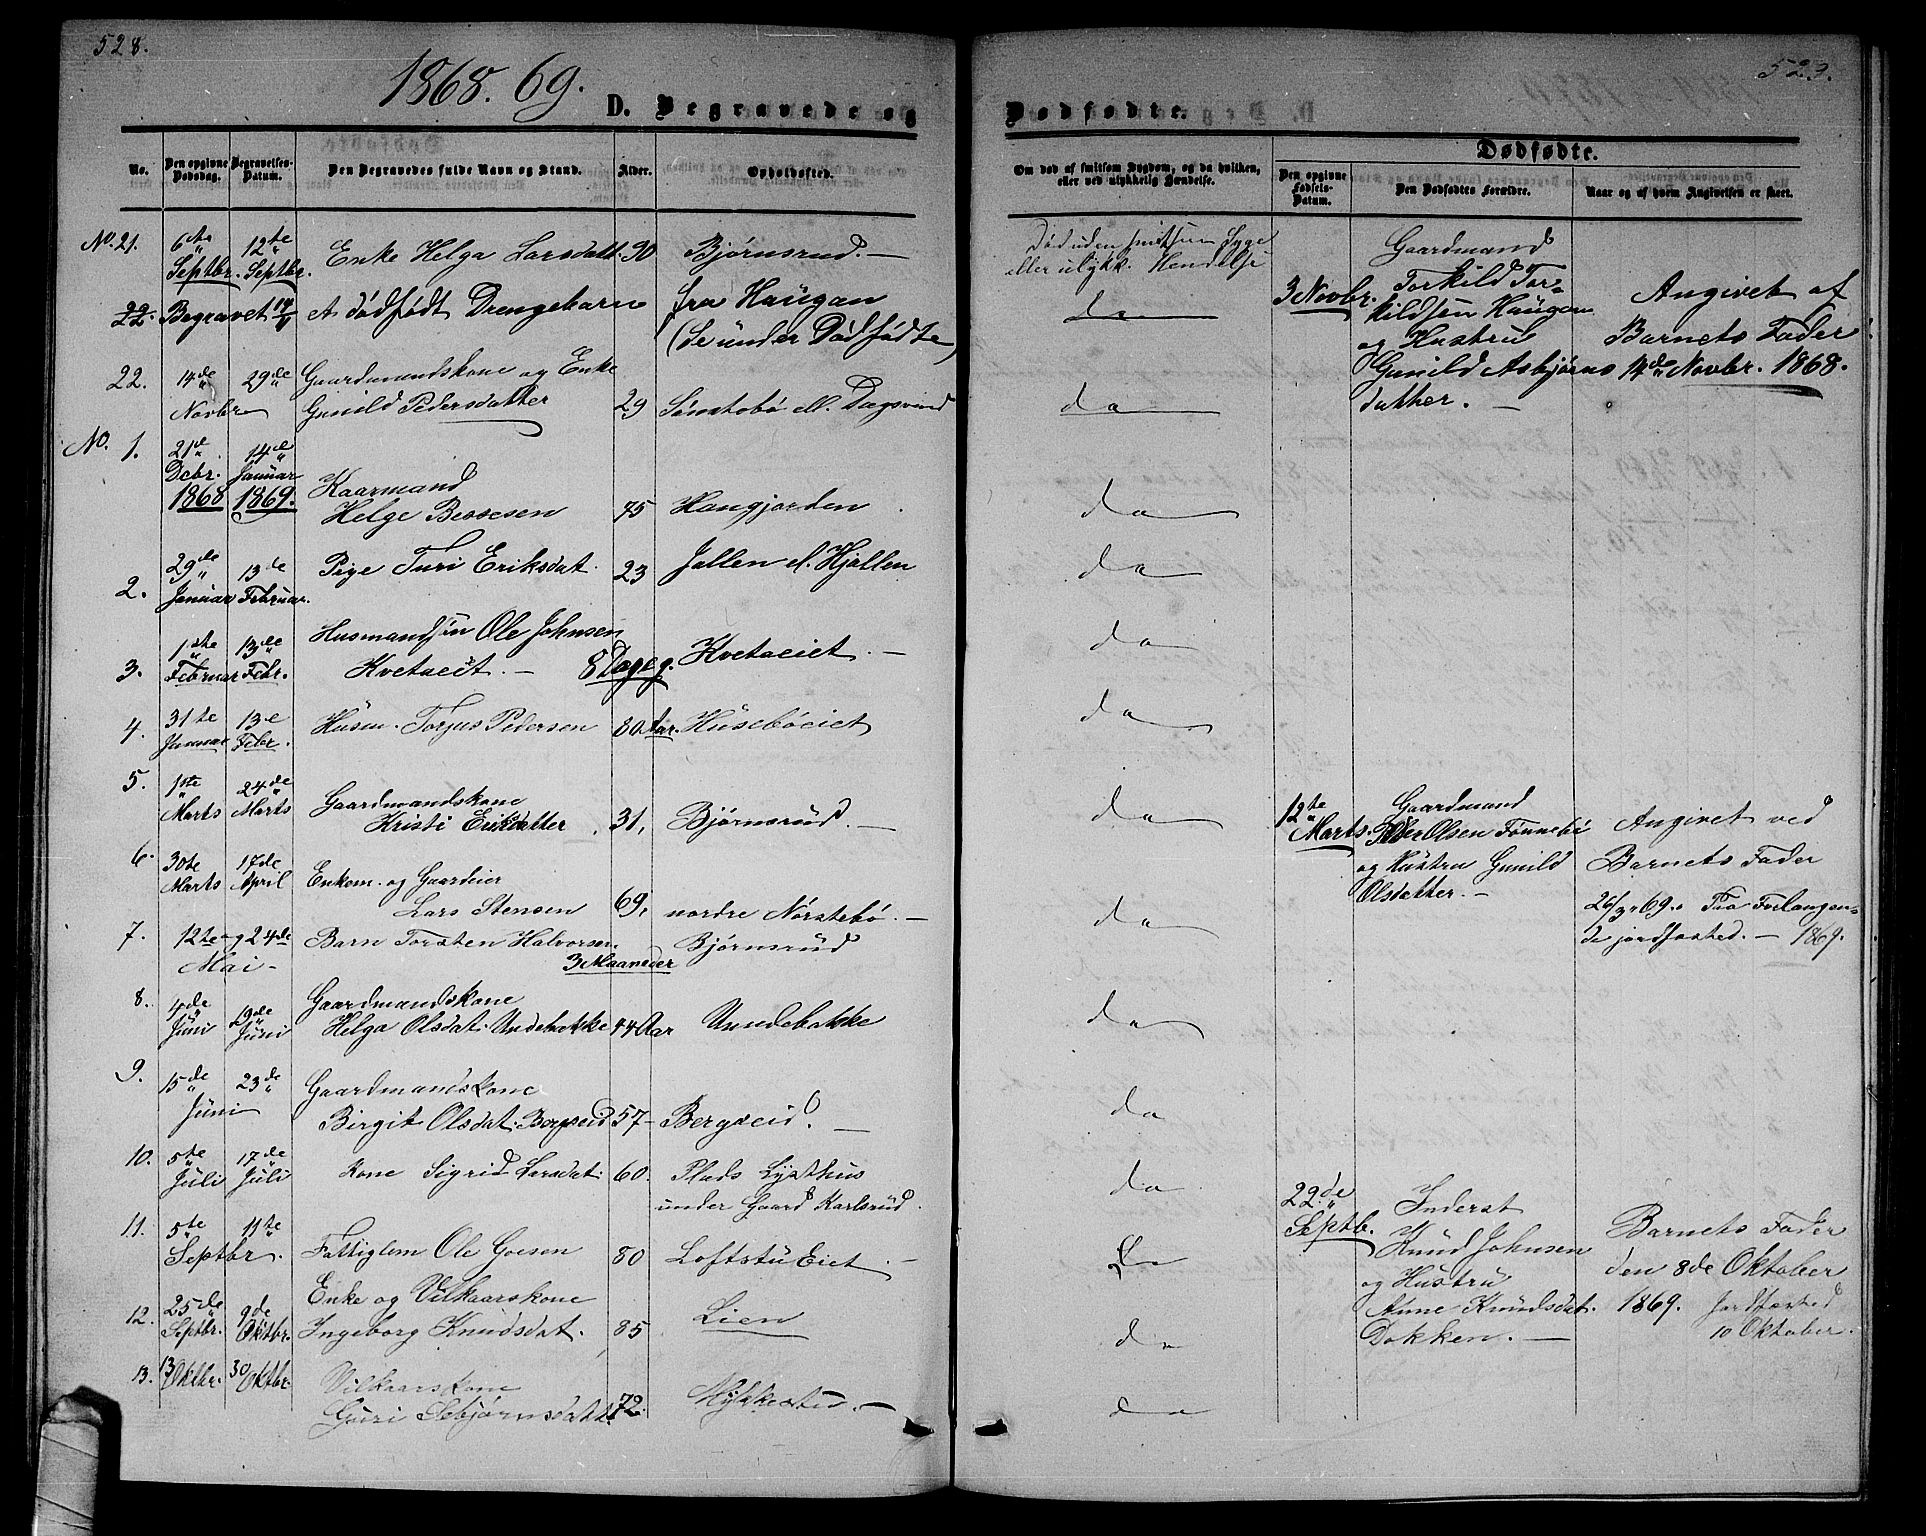 528.
1868. 69.
D. Begravede og
No.
Den opgivne Dødsdag.
Begravelses-Datum.
Den Begravedes fulde Navn og Stand.
Alder.
Opholdssted.
No. 21. 6te Septbr. 12te Septbr. Enke Helga Larsdatt. 90 Bjørnsrud. —
22. Begravet 14/11 et dødfødt Drengebarn fra Haugan
(se under Dødfødte)
22. 14de Novbr 29de Gaardmandskone og Enke
Gunild Pedersdatter 29
No. 1. 21de Decbr. 1868 14de Januar 1869. Kaarmand
Helge Bessesen 75 Haugjorden
2. 29de Januar 13de Februar. Pige Turi Eriksdat. 23 Jallen el. Hjallen
3. 1ste Februar 13de Febr. Husmandsøn Ole Johnsen
Kvetoeit. — 8 Dage g. Kvetoeiet. —
4. 31te Januar 13de Febr. Husm. Torjus Pedersen 80 Aar. Husebøeiet
5. 1ste Marts 24de Marts Gaardmandskone
Kristi Eriksdatter 31, Bjørnsrud. —
6. 30te Marts 17de April Enkem. og Gaardeier
Lars Stensen 69, nordre Nørstebø. —
7. 12te og 24de Mai — Barn Torsten Halvorsen
3 Maaneder Bjørnsrud
8. 4de Juni 19de Juni Gaardmandskone
Helga Olsdat. Undebakke 44 Aar Unndebakke
9. 15de 23de Juni Gaardmandskone
Birgit Olsdat. Bergseid 57 — Bergseid. —
10. 5te Juli 17de Juli Kone Sigrid Larsdat. 60. Plads Lysthus
under Gaard Karlsrud.
11. 5te 11te Septbr. Fattiglem Ole Goesen 80 Loftstu Eiet. —
12. 25de Septbr. 9de Oktbr. Enke og Vilkaarskone
Ingeborg Knudsdat. 85 Lien
13. 13 Oktbr. 30 Oktbr. Vilkaarskone
Guri Sebjørnsdatt. 72.
523.
Dødfødte.
Om død af smitsom Sygdom, og da hvilken, eller ved ulykkelig Hændelse.
Dødfødte.
Den opgivne Fødsels-Datum.
Den Dødfødtes Forældre.
Naar og af hvem Angivelsen er skeet.
Død uden smitsom Syge
eller ulykk. Hendelse
do
do
do
do
do
do
do
do
do
do
do
do
do
do
3 Novbr.
Gaardmand
Torkild Tor-
kildsen Haugan
og Hustru
Gunild Asbjørns
datter. —
Angivet af
Barnets Fader
14de Novbr. 1868.
12te Marts.
Gaardmand
Peder Olsen Tonnebø
og Hustru Gunild
Olsdatter. —
Angivet ved
Barnets Fader
26/3 69. Paa Forlangen-
de jordfæsted. — 1869.
22de Septb.
Inderst
Knud Johnsen
og Hustru
Anne Knudsdat.
Dokken. —
Barnets Fader
den 8de Oktober
1869. Jordfæsted
10 Oktober.